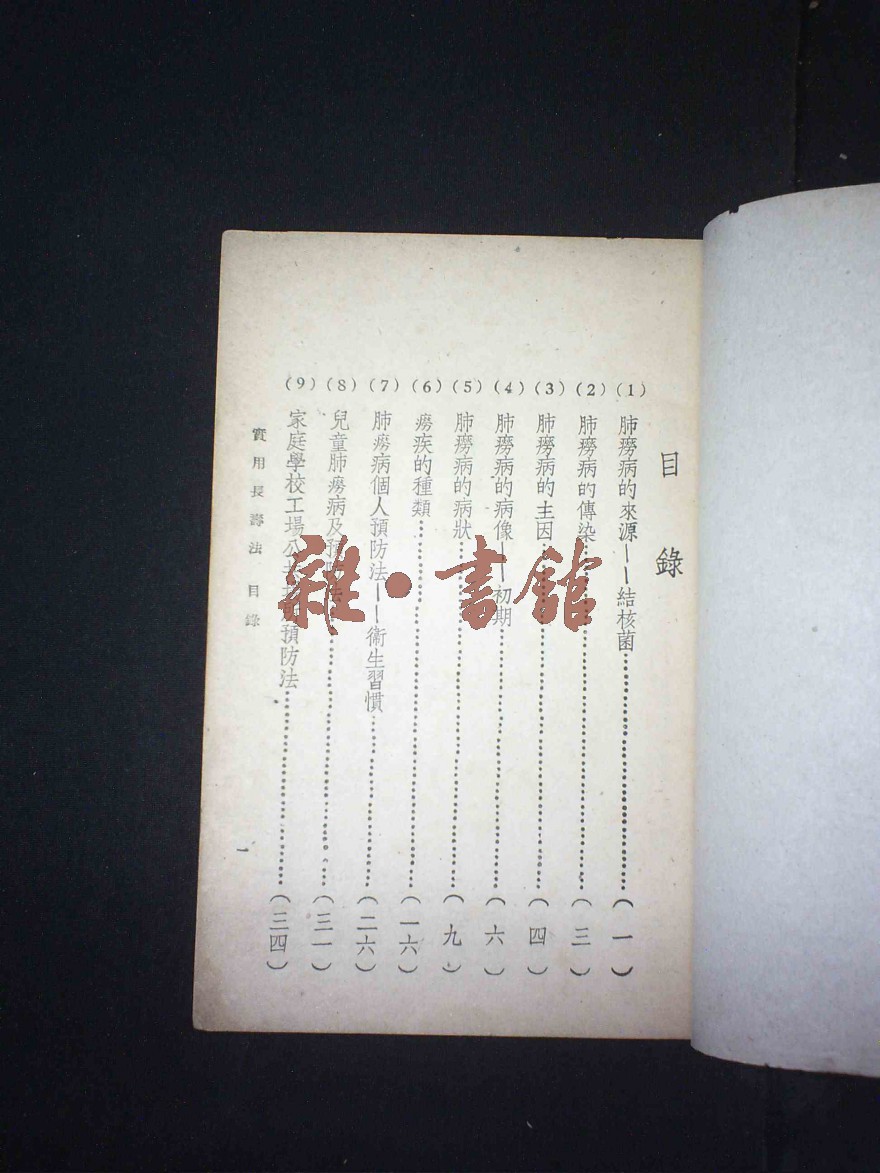 目錄
(1)肺癆病的來源——結核菌……(一)
(2)肺癆病的傳染……(三)
(3)肺癆病的主因……(四)
(4)肺癆病的病像——初期……(六)
(5)肺癆病的病狀……(九)
(6)癆疾的種類……(一六)
(7)肺癆病個人預防法——衛生習慣……(二六)
(8)兒童肺癆病及預防……(三一)
(9)家庭學校工場公共預防法……(三四)
實用長壽法 目錄
一
雜·書館